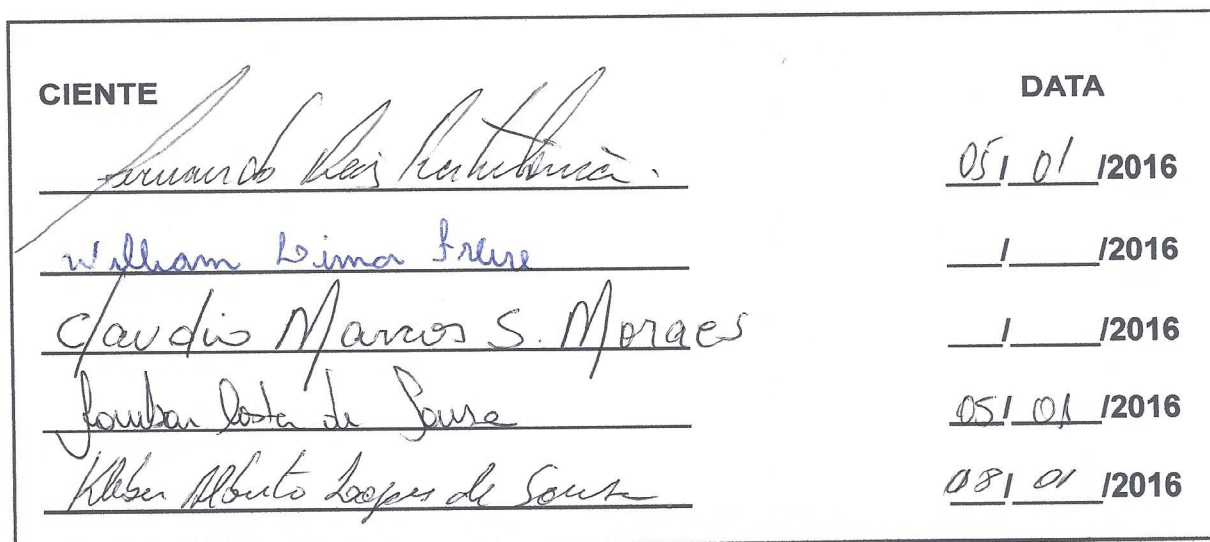 CIENTE DATA
Fernando Reis 05/01/2016
William Lima Freire / /2016
Claudio Marcos S. Moraes / /2016
Costa de Sousa 05/01/2016
Kleber Alberto Lopes de Sousa 08/01/2016